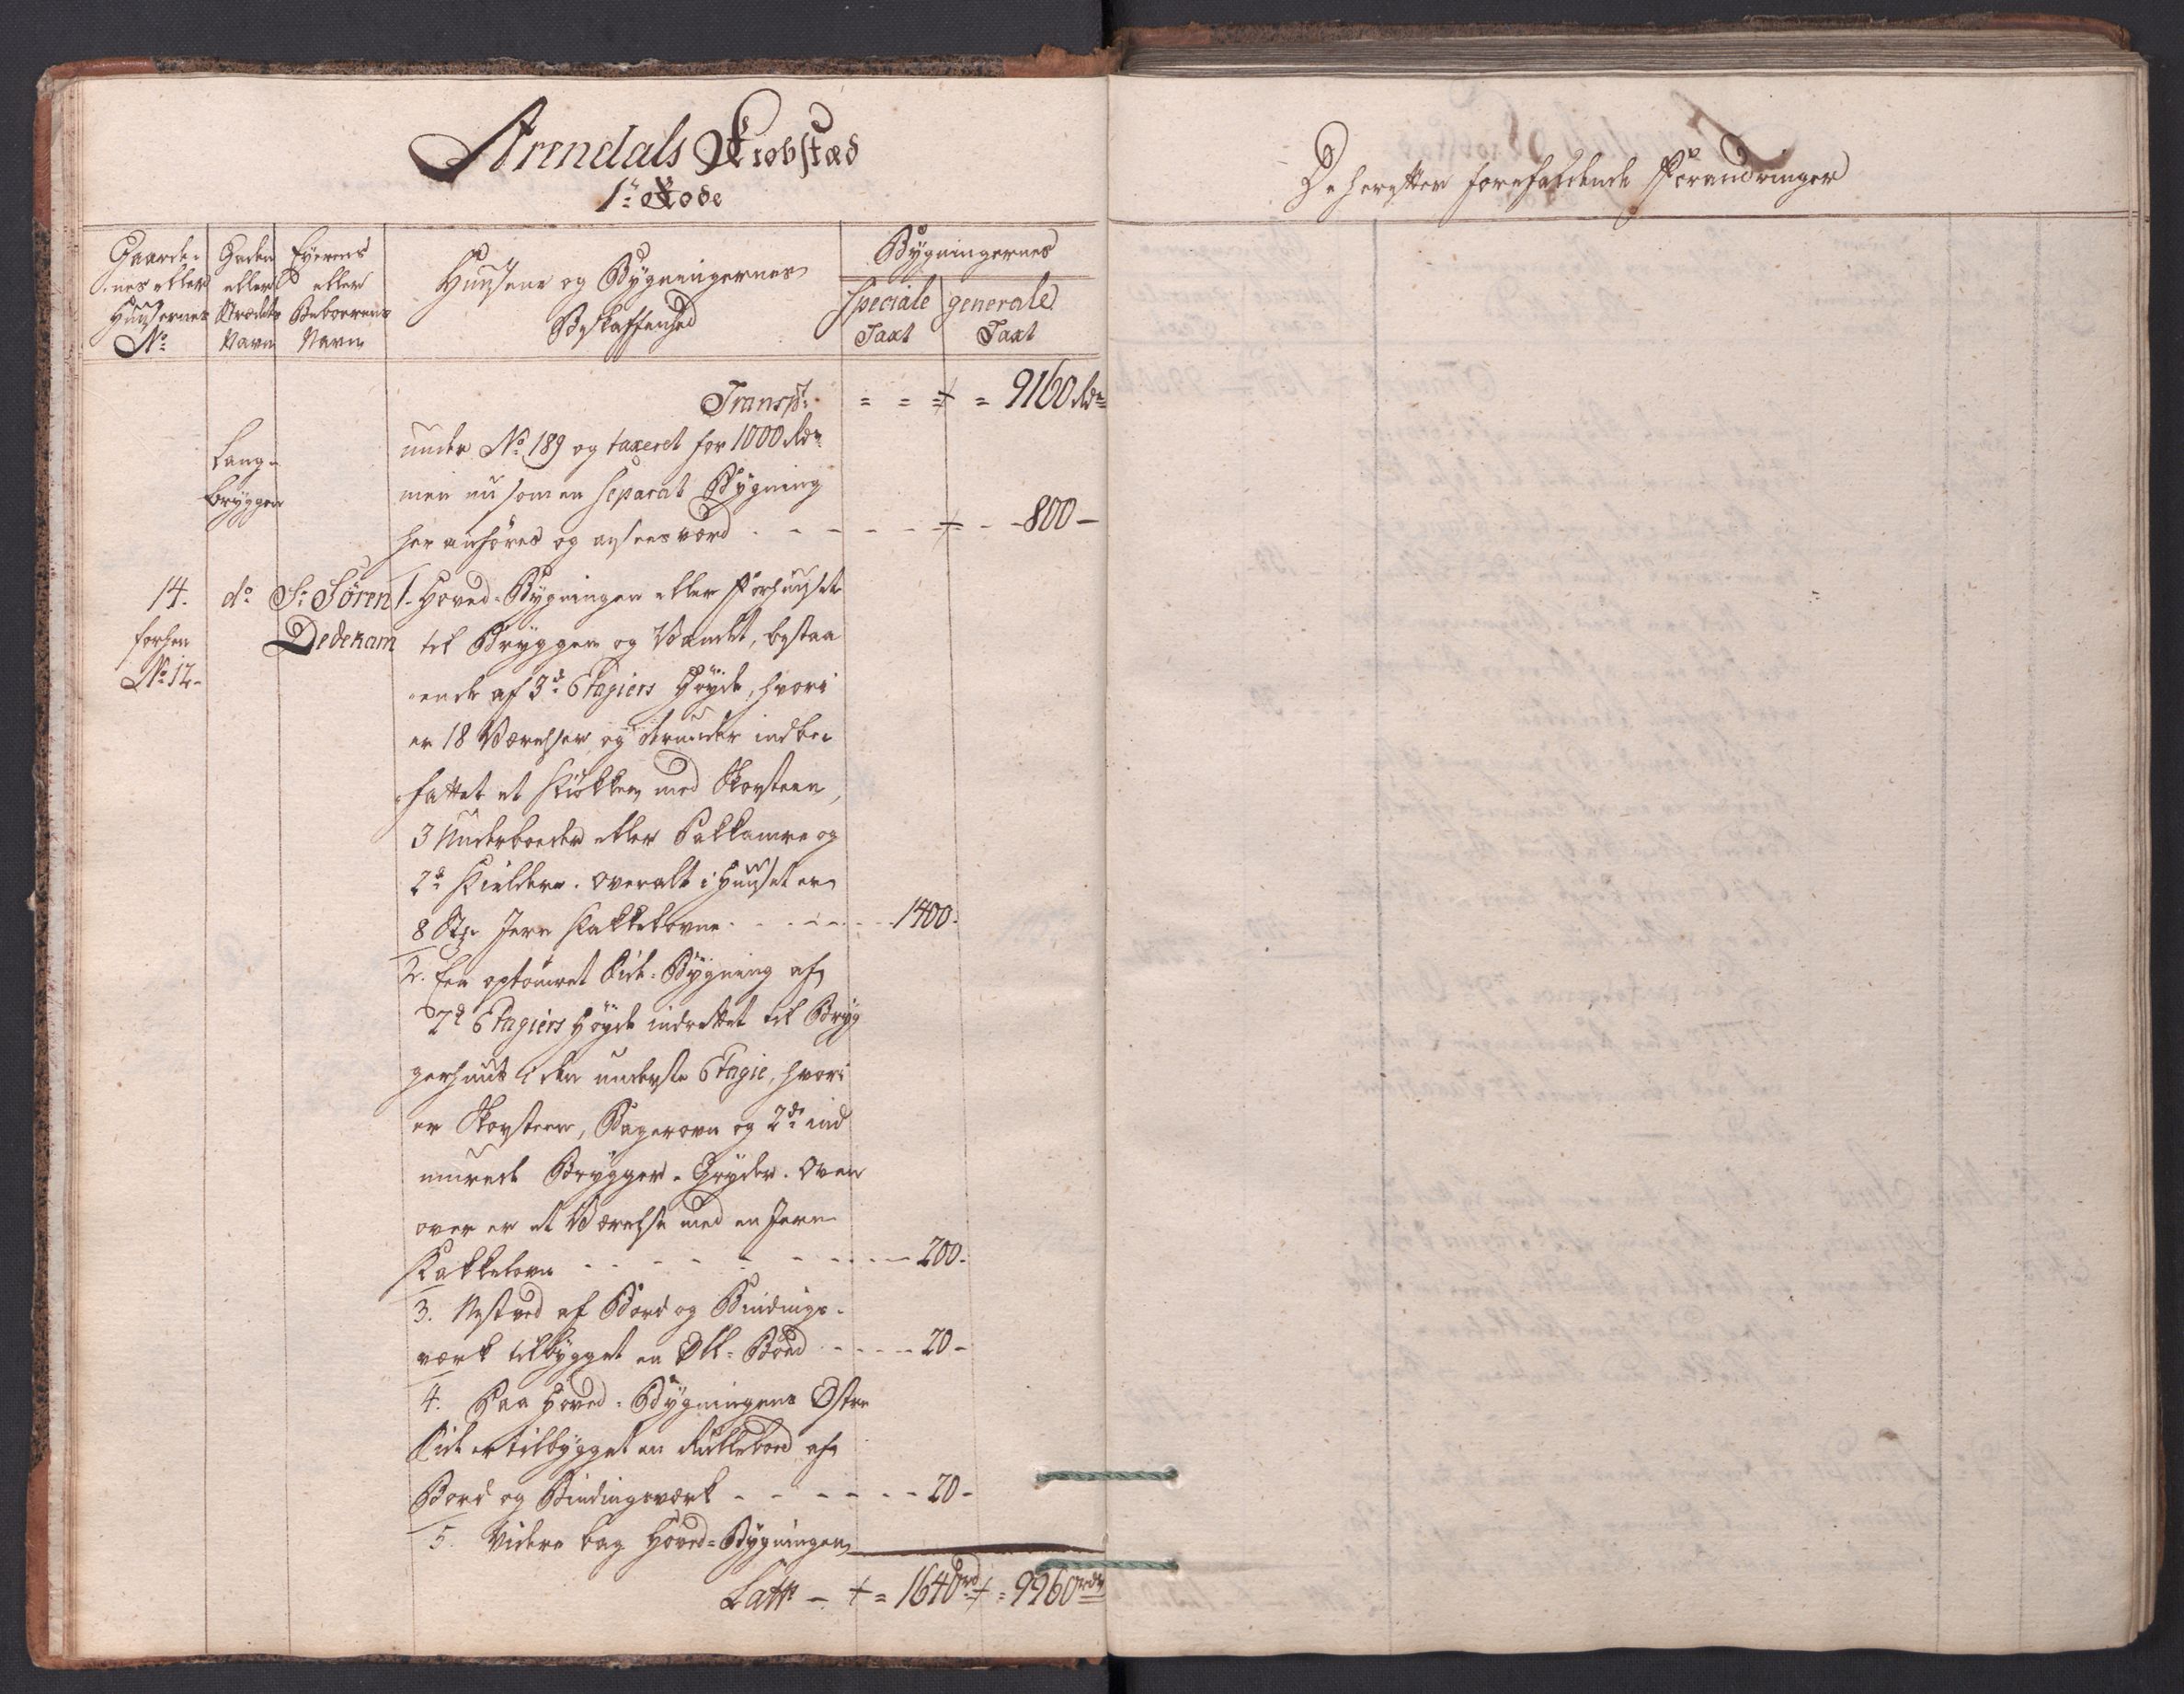 Arendals Kiøbstæd
1te Rode
Gaarde-
nes eller
Huusernes
No
Gaden
eller
Strædets
Navn
Eyerens
eller
Beboerens
Navn
Huusene og Bygningernes
Beskaffenhed
Bygningernes
speciale
Taxt
generale
Taxt
Transpt: = = = 9160 Rdr
Lang-
bryggen
under No 189 og taxeret for 1000 Rdr
men nu som en separat Bygning
her anføres og ansees værd - - - - 800 -
14.
forhen
No 12-
do
Sr Søren
Dedekam
1. Hoved-Bygningen eller Forhuuset
til Bryggen og Vandet, bestaa
ende af 3de Etagiers Høyde, hvori
er 18 Værelser og derunder indbe-
fattet et Kiøkken med Skorsteen,
3 Underboeder eller Pakkamre og
2de Kieldere. Overalt i Huuset er
8 Stk Jern Kakkelovne - - - - 1400.
2. Een optømret Side-Bygning af
2de Etagiers Høyde indrettet til Bryg
gerhuus i den underste Etagie, hvori
er Skorsteen, Bagerovn og 2de ind
murede Brygger-Gryder. Oven
over er et Værelse med en Jern
Kakkelovn - - - - - - - 200.
3. Vest ved af Bord og Bindings-
værk tilbygget en Boed - - - - 20 -
4. Paa Hoved-Bygningens Østre
Side er tilbygget en Rulleboed af
Bord og Bindingsværk - - - - - 20 -
5. Videre bag Hoved-Bygningen
Latt - = 1640 rd = 9960 rdr
De herefter forefaldende Forandringer